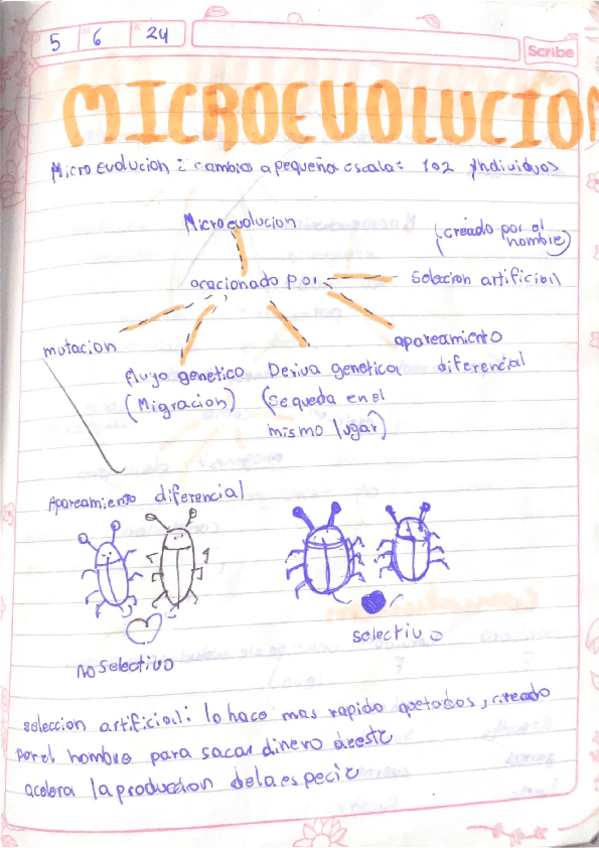 5 6 24
Scribe
MICROEVOLUCION
Micro Evolucion: cambios a pequeña escala: 1 o 2 yndividuos
Microevolucion
(creado por el
hombre)
ocacionado por
Selecion artificial
mutacion
apareamiento
diferencial
flujo genetico
(Migracion)
Deriva genetica
(se queda en el
mismo lugar)
Apareamiento diferencial
no selectivo
selectivo
seleccion artificial: lo hace mas rapido que todos, creado
por el hombre para sacar dinero de este
acelera la produccion de la especie